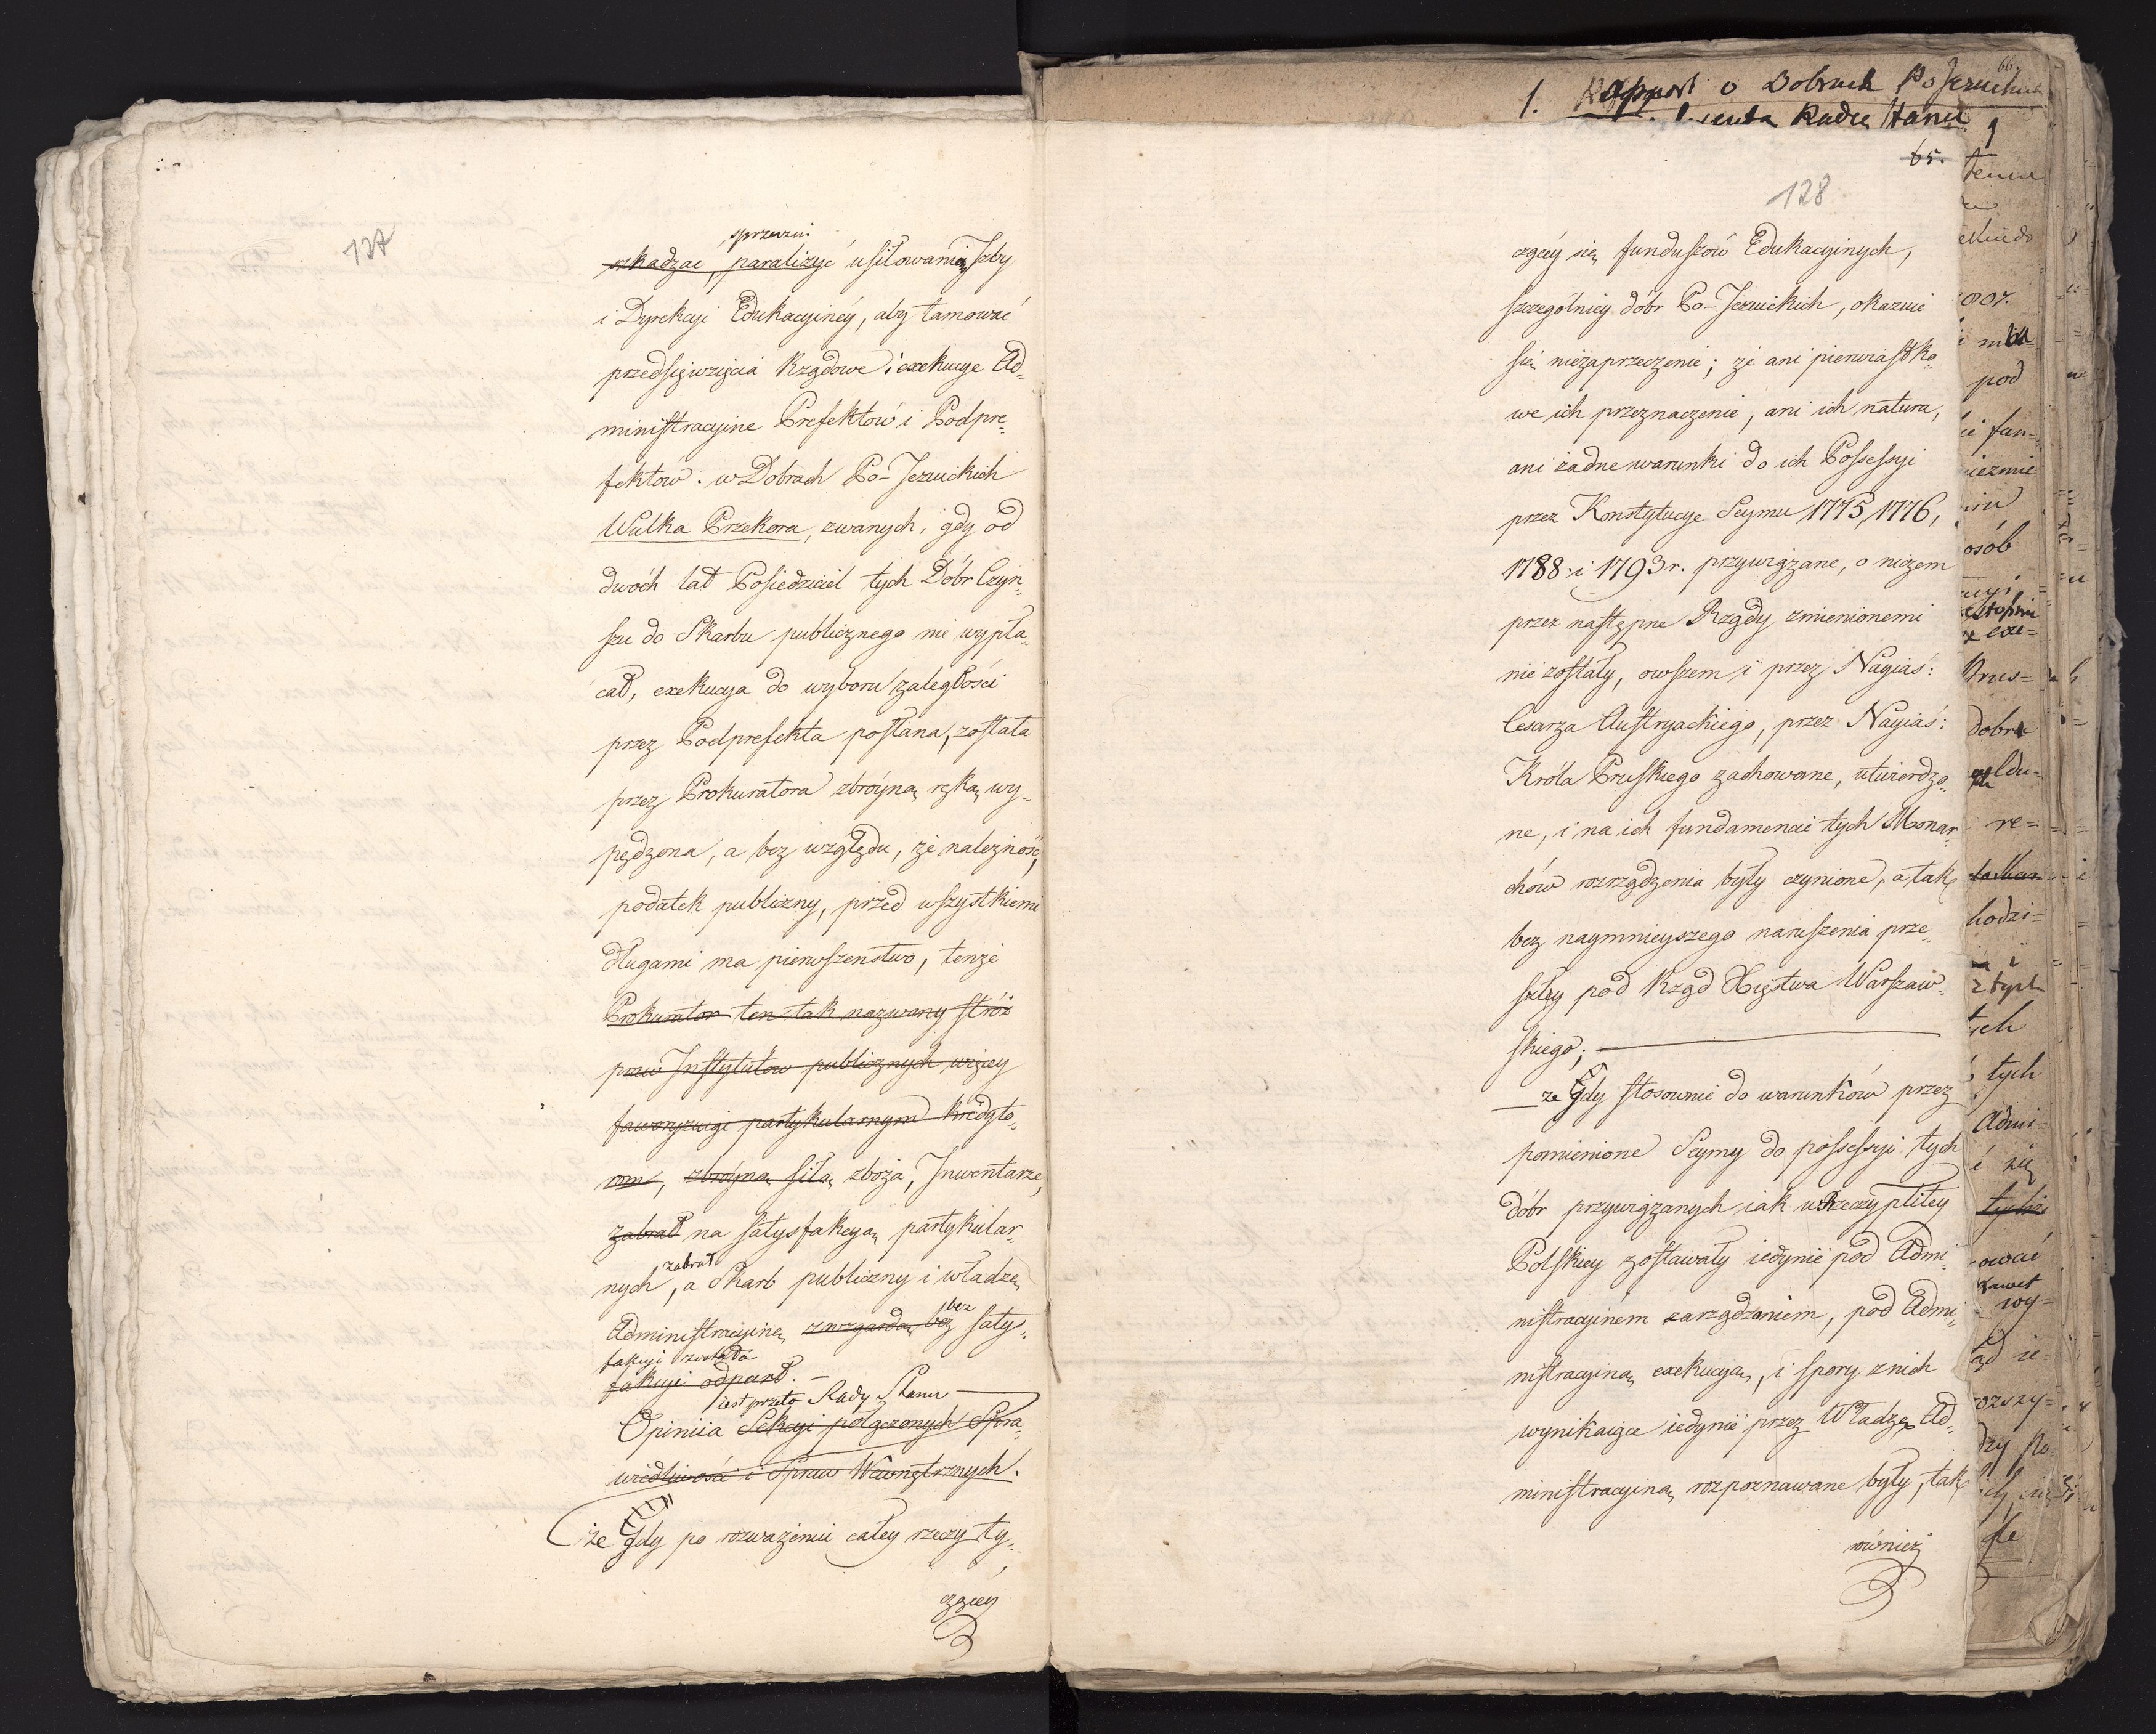 127
sprzeciw:
szkadzać, paraliżyć usiłowania Izby
i Dyrekcyi Edukacyinéy, aby tamować
przedsięwzięcia Rządowe i exekucye Ad„
ministracyine Prefektów i Podpre„
fektów. w Dobrach Po-Jezuickich
Wulka Przekora, zwanych, gdy od
dwóch lat Posiedziciel tych Dóbr Czyn„
szu do Skarbu publicznego nie wypła„
cał, exekucya do wyboru zaległości
przez Podprefekta posłana, została
przez Prokuratora zbróyną ręką wy„
pędzona, a bez względu, że należność,
podatek publiczny, przed wszystkiemi
długami ma pierwszeństwo, tenże
Prokurator ten tak nazwany stróż
praw Instytutow publicznych więcey
faworyzuiąc partykularnym kredyto„
rom, zbróyną siłą zboża, Inwentarze,
zabrał na satysfakcyą partykular„
zabrał
nych, a Skarb publiczny i władzę
bez
Administracyiną z wzgardą bez satys„
fakcyi
fakcyi odparł. –
iest przeto Rady Stanu
Opiniia Sekcyi połączonych Spra„
wiedliwości i Spraw Wewnętrznych.
że Gdy po rozważeniu całey rzeczy ty„
czącey
1. Rapport o Dobrach Po Jezuickich
Radzie Stanu
66.
65.
128
czącéy się funduszów Edukacyinych,
szczególniey dóbr Po-Jezuickich, okazuie
się niezaprzeczenie; że ani pierwiastko„
we ich przeznaczenie, ani ich natura,
ani żadne warunki do ich Possessyi
przez Konstytucye Seymu 1775, 1776,
1788 i 1793 r. przywiązane, o niczem
przez następne Rządy zmienionemi
nie zostały, owszem i przez Nayiaś:
Cesarza Austryackiego, przez Nayiaś:
Króla Pruskiego zachowane, utwierdzo„
ne, i na ich fundamencie tych Monar„
chów rozrządzenia były czynione, a tak
bez naymnieyszego naruszenia prze„
szły pod Rząd Xięstwa Warszaw„
skiego;
że Gdy stosownie do warunków przez
pomienione Seymy do possessyi tych
dóbr przywiązanych iak w Rzeczyplitey
Polskiey zostawały iedynie pod Admi„
nistracyinem zarządzaniem, pod Admi„
nistracyiną exekucyą, i spory z nich
wynikaiące iedynie przez Władzę Ad„
ministracyiną rozpoznawane były, tak
również
pod
osób
dobra
re=
z tych
tych
Admi=
się
tychże
wy=